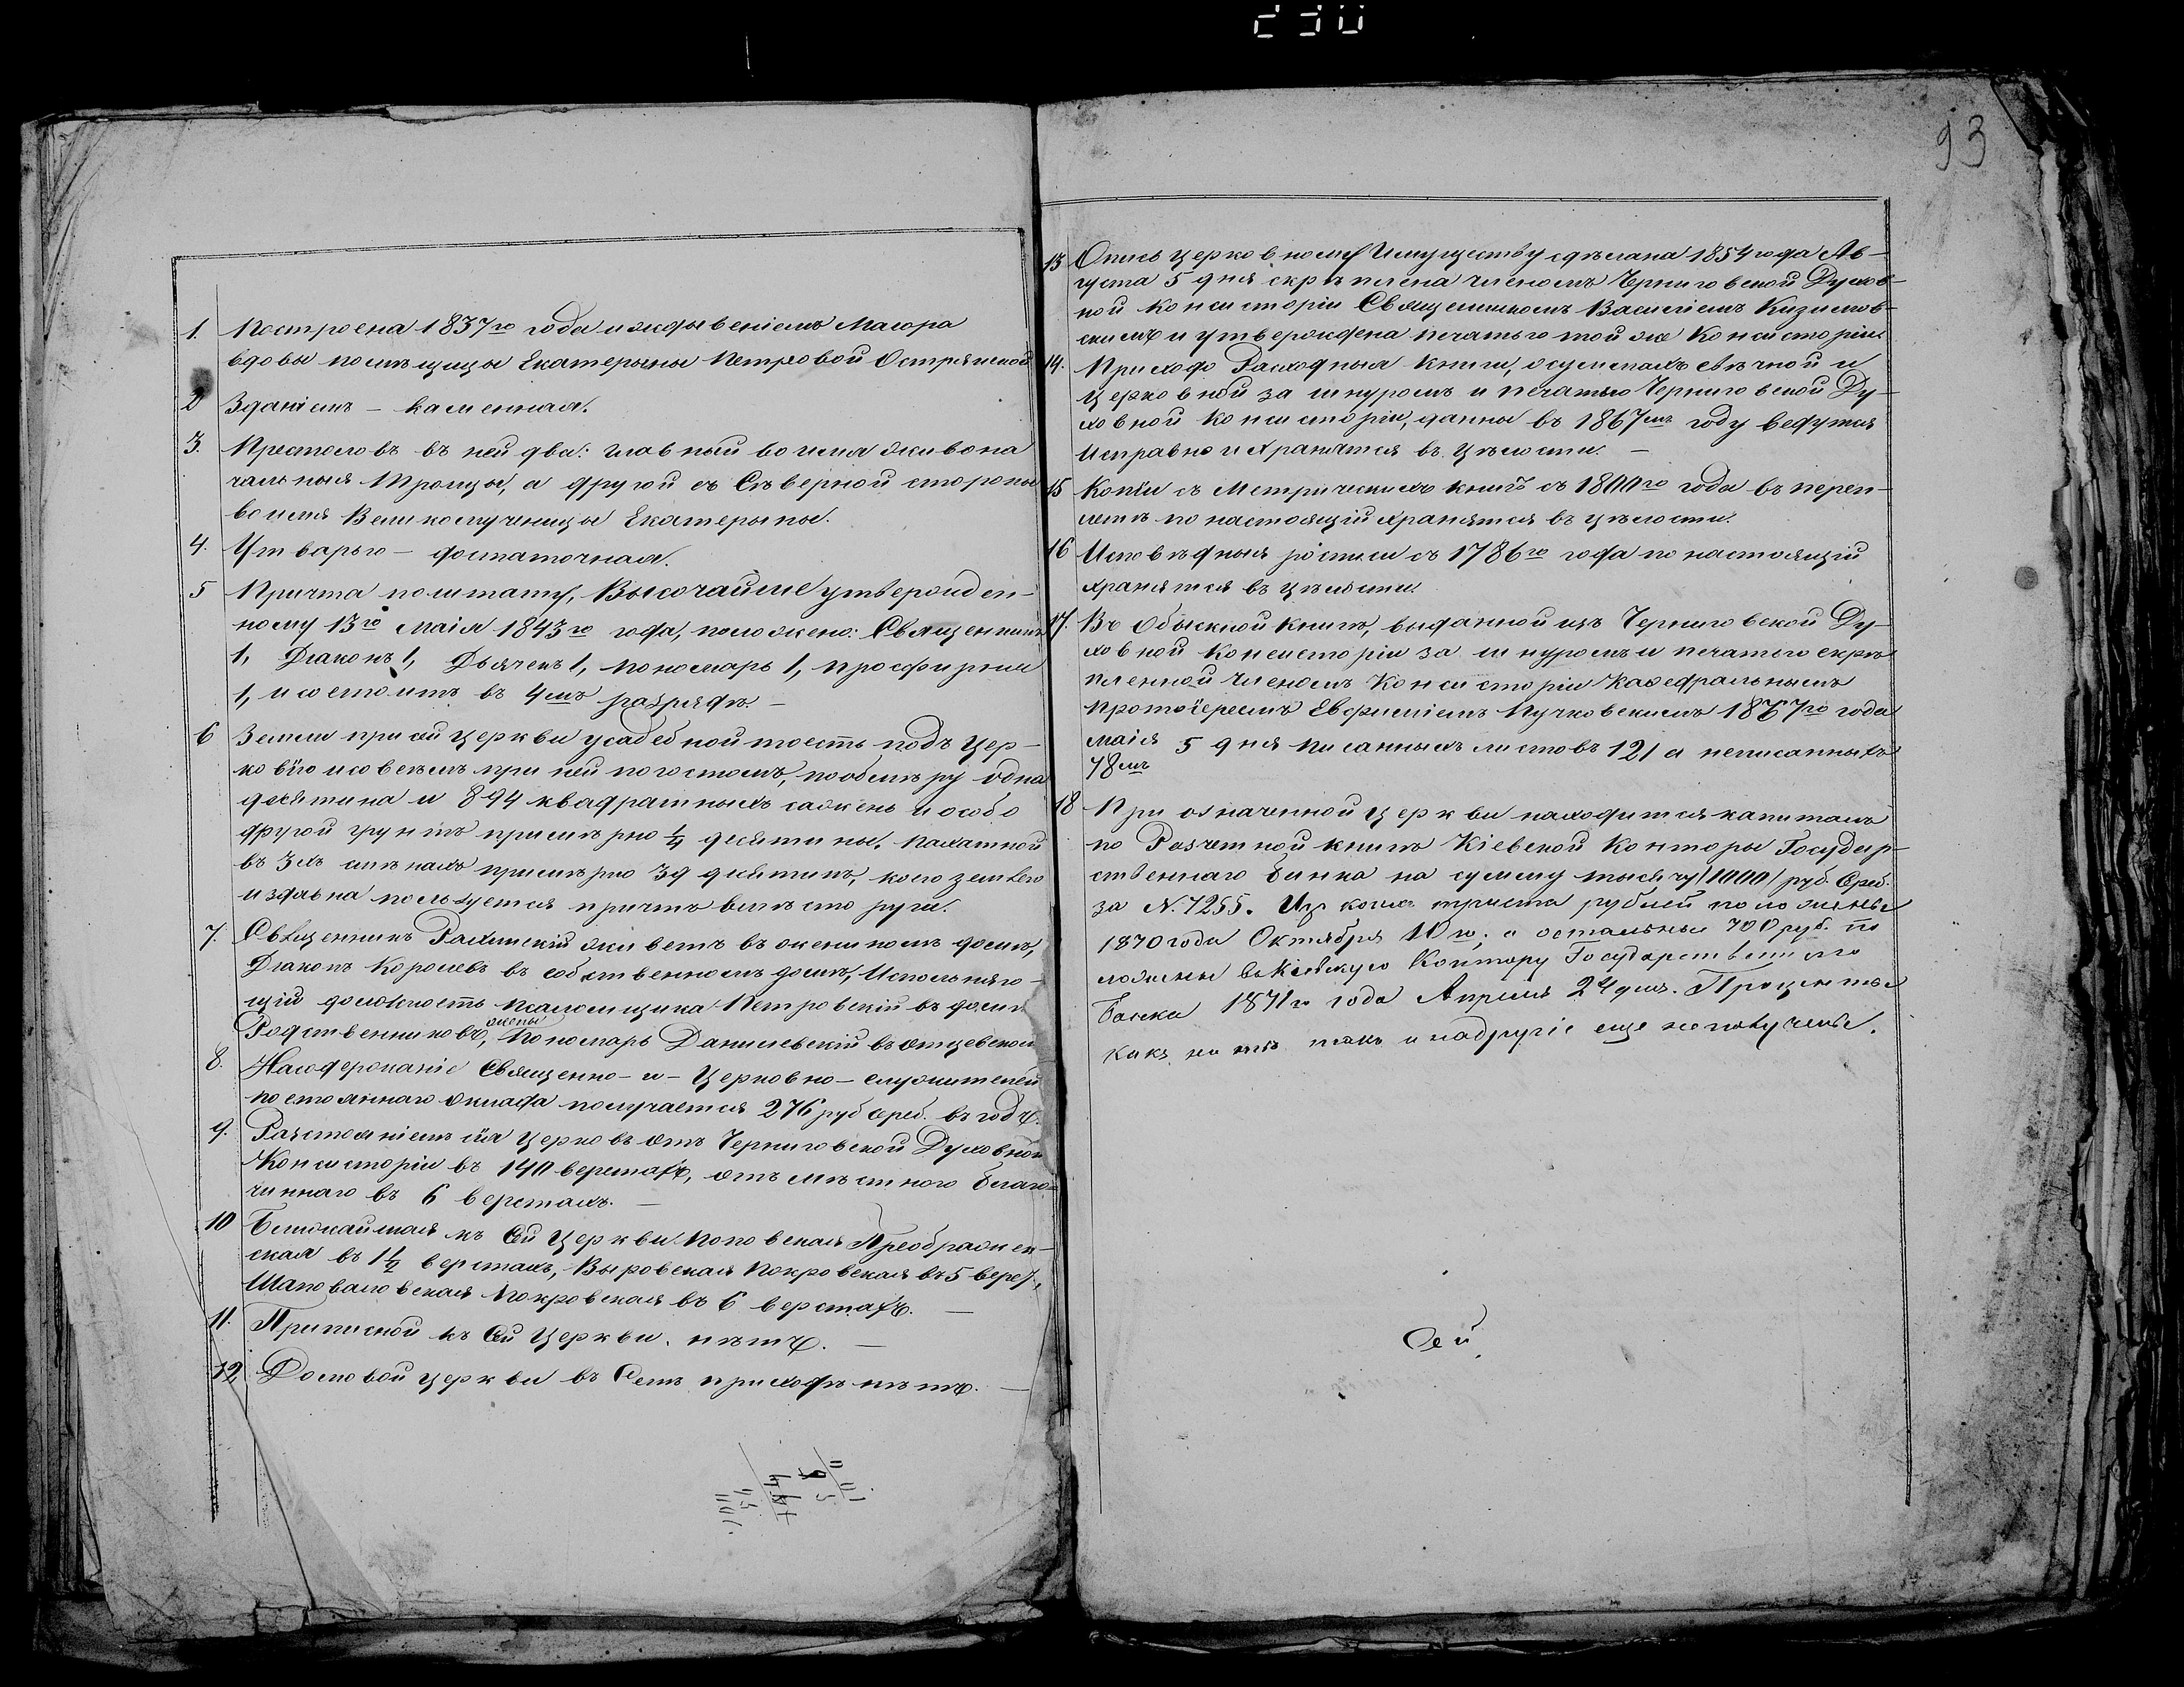 230
93
1. Построена 1837го года иждывеніемъ Маіора
вдовы помѣщицы Екатерыны Петровой Острянской
2 Зданіемъ – каменная.
3. Престоловъ въ ней два: главный во имя живона
чальныя Троицы, а другой съ Сѣверной стороны
во имя Великомученицы Екатерыны.
4. Утварью – достаточная.
5 Причта по штату, Высочайше утвержден-
ному 13го Маія 1843го года, положено: Священникъ
1, Діаконъ 1, Дьячекъ 1, Пономарь 1, Просфирня
1, и состоитъ въ 4мъ разрядѣ. –
6 Земли при сій церкви усадебной тоесть подъ Цер-
ковію и совсѣмъ при ней погостомъ, по обмѣру одна
десятина и 894 квадратныхъ сажень и особо
другой грунтъ примѣрно 1/4 десятины. Пахатной
въ 3хъ смѣнахъ примѣрно 39 десятинъ, коею землею
издавна пользуется причтъ вмѣсто руги.
7. Священникъ живетъ въ жениномъ домѣ,
Діаконъ Королевъ въ собственномъ домѣ, Исполняю-
щій должность Псаломщика Петровскій въ домѣ
Родственниковъ жены, Пономарь Данилевскій въ отцевском
8. На содержаніе Священно – и – Церковно – служителей
постояннаго оклада получается 276 руб сереб. въ годъ.
9. Разстояніемъ сія Церковь отъ Черниговской Духовной
Консисторіи въ 140 верстахъ, отъ мѣстного Благо-
чиннаго въ 6 верстахъ. –
10 Ближайшая къ Сій Церкви Поповская Преображен-
ская въ 1 1/2 верстахъ, Выровская Покровская въ 5 верс.,
Шаповаловская Покровская въ 6 верстахъ. –
11. Приписной къ Сій Церкви, нѣтъ. –
12 Домовой церкви въ Семъ приходѣ нѣтъ. –
13 Опись церковному Имуществу сдѣлана 1854 года Ав-
густа 5 дня скрѣплена членомъ Черниговской Духов-
ной Консисторіи Священникомъ Василіемъ
скимъ и утверждена печатью той же Консисторіи
14. Приходо Расходныя книги, о суммахъ свѣчной и
церковной за шнуромъ и печатью Черниговской Ду-
ховной Консисторіи, данны въ 1867мъ году ведутся
Исправно и хранятся въ цѣлости. –
15 Копіи съ Метрическихъ книгъ съ 1800го года въ переп-
летѣ по настоящій хранятся въ цѣлости.
16 Исповѣдныя росписи съ 1786го года по настоящій
хранятся въ цѣлости.
17. Въ Обыскной книгѣ, выданной изъ Черниговской Ду-
ховной Консисторіи за шнуромъ и печатью скрѣ
пленной членомъ Консисторіи Каѳедральнымъ
Протоіереемъ Евфиміемъ Пучковскимъ 1867го года
Маія 5 дня писанныхъ листовъ 121 а неписанныхъ
78мъ
18 При означенной церкви находится капиталъ
по Разчетной книгѣ Кіевской Конторы Государ-
ственнаго Банка на сумму тысячу (1000) руб. Среб.
за N. 7255. Из коихъ триста рублей положены
1870 года Октября 10го, а остальные 700 руб. по
ложены въ Кіевскую Контору Государственнаго
Банка 1871го года Апрѣля 24 дня. Проценты
какъ на тѣ такъ и на другіе еще не получены.
Сей